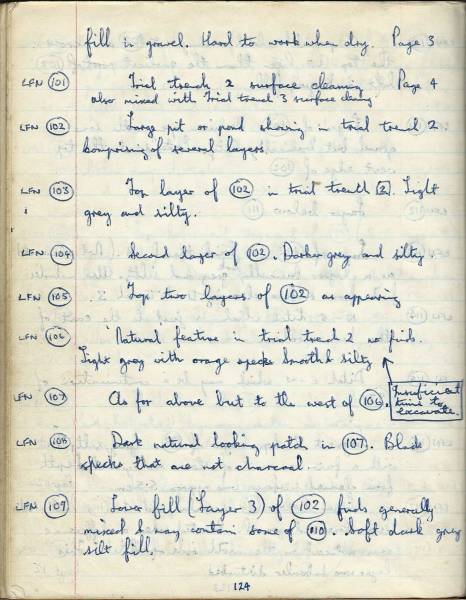 fill in gravel. Hard to work when dry. Page 3
LFN 101 Trial trench 2 surface cleaning Page 4
also mixed with Trial trench 3 surface cleaning
LFN 102 Large pit or pond showing in trial trench 2
comprising of several layers.
LFN 103 Top layer of 102 in trial trench 2. Light
grey and silty.
LFN 104 Second layer of 102. Darker grey and silty.
LFN 105 Top two layers of 102 as appearing
LFN 106 Natural feature in trial trench 2 no finds.
Light grey with orange specks Smooth & silty
Insufficient
time to
excavate.
LFN 107 As for above but to the west of 106.
LFN 108 Dark natural looking patch in 107. Black
specks that are not charcoal.
LFN 109 Lower fill (Layer 3) of 102 finds generally
mixed & may contain some of 110. Soft dark grey
silt fill.
124